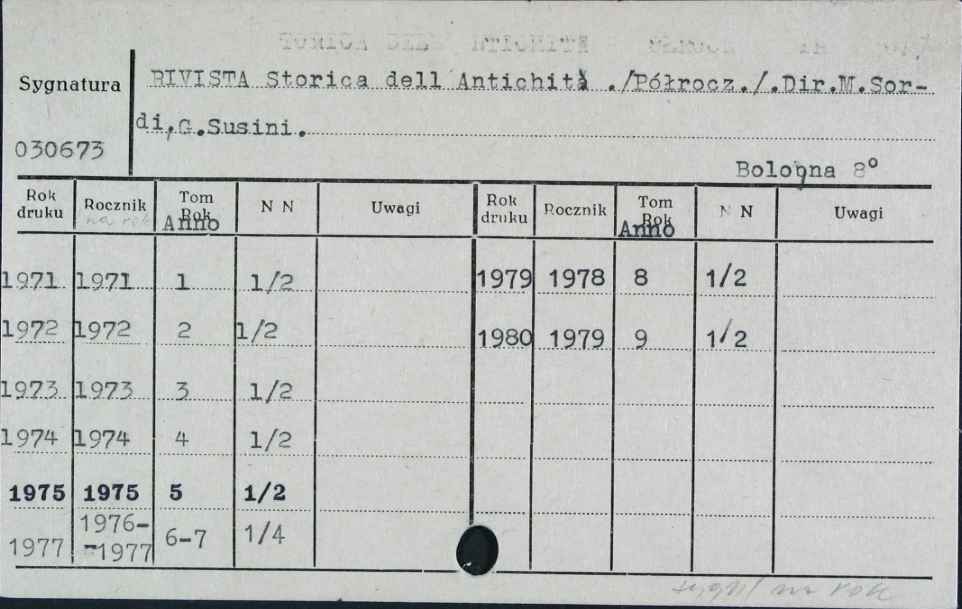 Sygnatura
RIVISTA Storica dell Antichità ./Półrocz./.Dir.M.Sor-
di,G.Susini.
030673
Bologna 8°
Rok druku Rocznik Tom Rok Anno N N Uwagi Rok druku Rocznik Tom Rok Anno N N Uwagi
na rok
1971 1971 1 1/2 1979 1978 8 1/2
1972 1972 2 1/2 1980 1979 9 1/2
1973 1973 3 1/2
1974 1974 4 1/2
1975 1975 5 1/2
1977 1976-
-1977 6-7 1/4
na rok